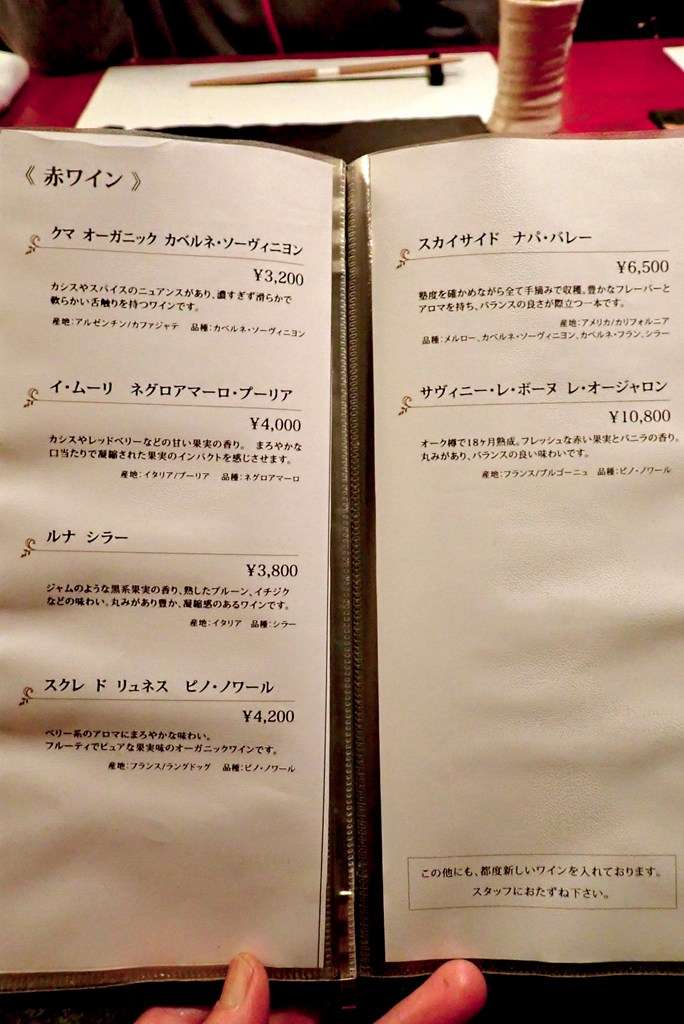 《 赤ワイン 》
クマ オーガニック カベルネ・ソーヴィニヨン
¥3,200
カシスやスパイスのニュアンスがあり、濃すぎず滑らかで
軟らかい舌触りを持つワインです。
産地：アルゼンチン/カファジャテ 品種：カベルネ・ソーヴィニヨン
イ・ムーリ ネグロアマーロ・プーリア
¥4,000
カシスやレッドベリーなどの甘い果実の香り。 まろやかな
口当たりで凝縮された果実のインパクトを感じさせます。
産地：イタリア/プーリア 品種：ネグロアマーロ
ルナ シラー
¥3,800
ジャムのような黒系果実の香り、熟したプルーン、イチジク
などの味わい。丸みがあり豊か、凝縮感のあるワインです。
産地：イタリア 品種：シラー
スクレ ド リュネス ピノ・ノワール
¥4,200
ベリー系のアロマにまろやかな味わい。
フルーティでピュアな果実味のオーガニックワインです。
産地：フランス/ラングドッグ 品種：ピノ・ノワール
スカイサイド ナパ・バレー
¥6,500
熟度を確かめながら全て手摘みで収穫。豊かなフレーバーと
アロマを持ち、バランスの良さが際立つ一本です。
産地：アメリカ/カリフォルニア
品種：メルロー、カベルネ・ソーヴィニヨン、カベルネ・フラン、シラー
サヴィニー・レ・ボーヌ レ・オージャロン
¥10,800
オーク樽で18ヶ月熟成。フレッシュな赤い果実とバニラの香り。
丸みがあり、バランスの良い味わいです。
産地：フランス/ブルゴーニュ 品種：ピノ・ノワール
この他にも、都度新しいワインを入れております。
スタッフにおたずね下さい。